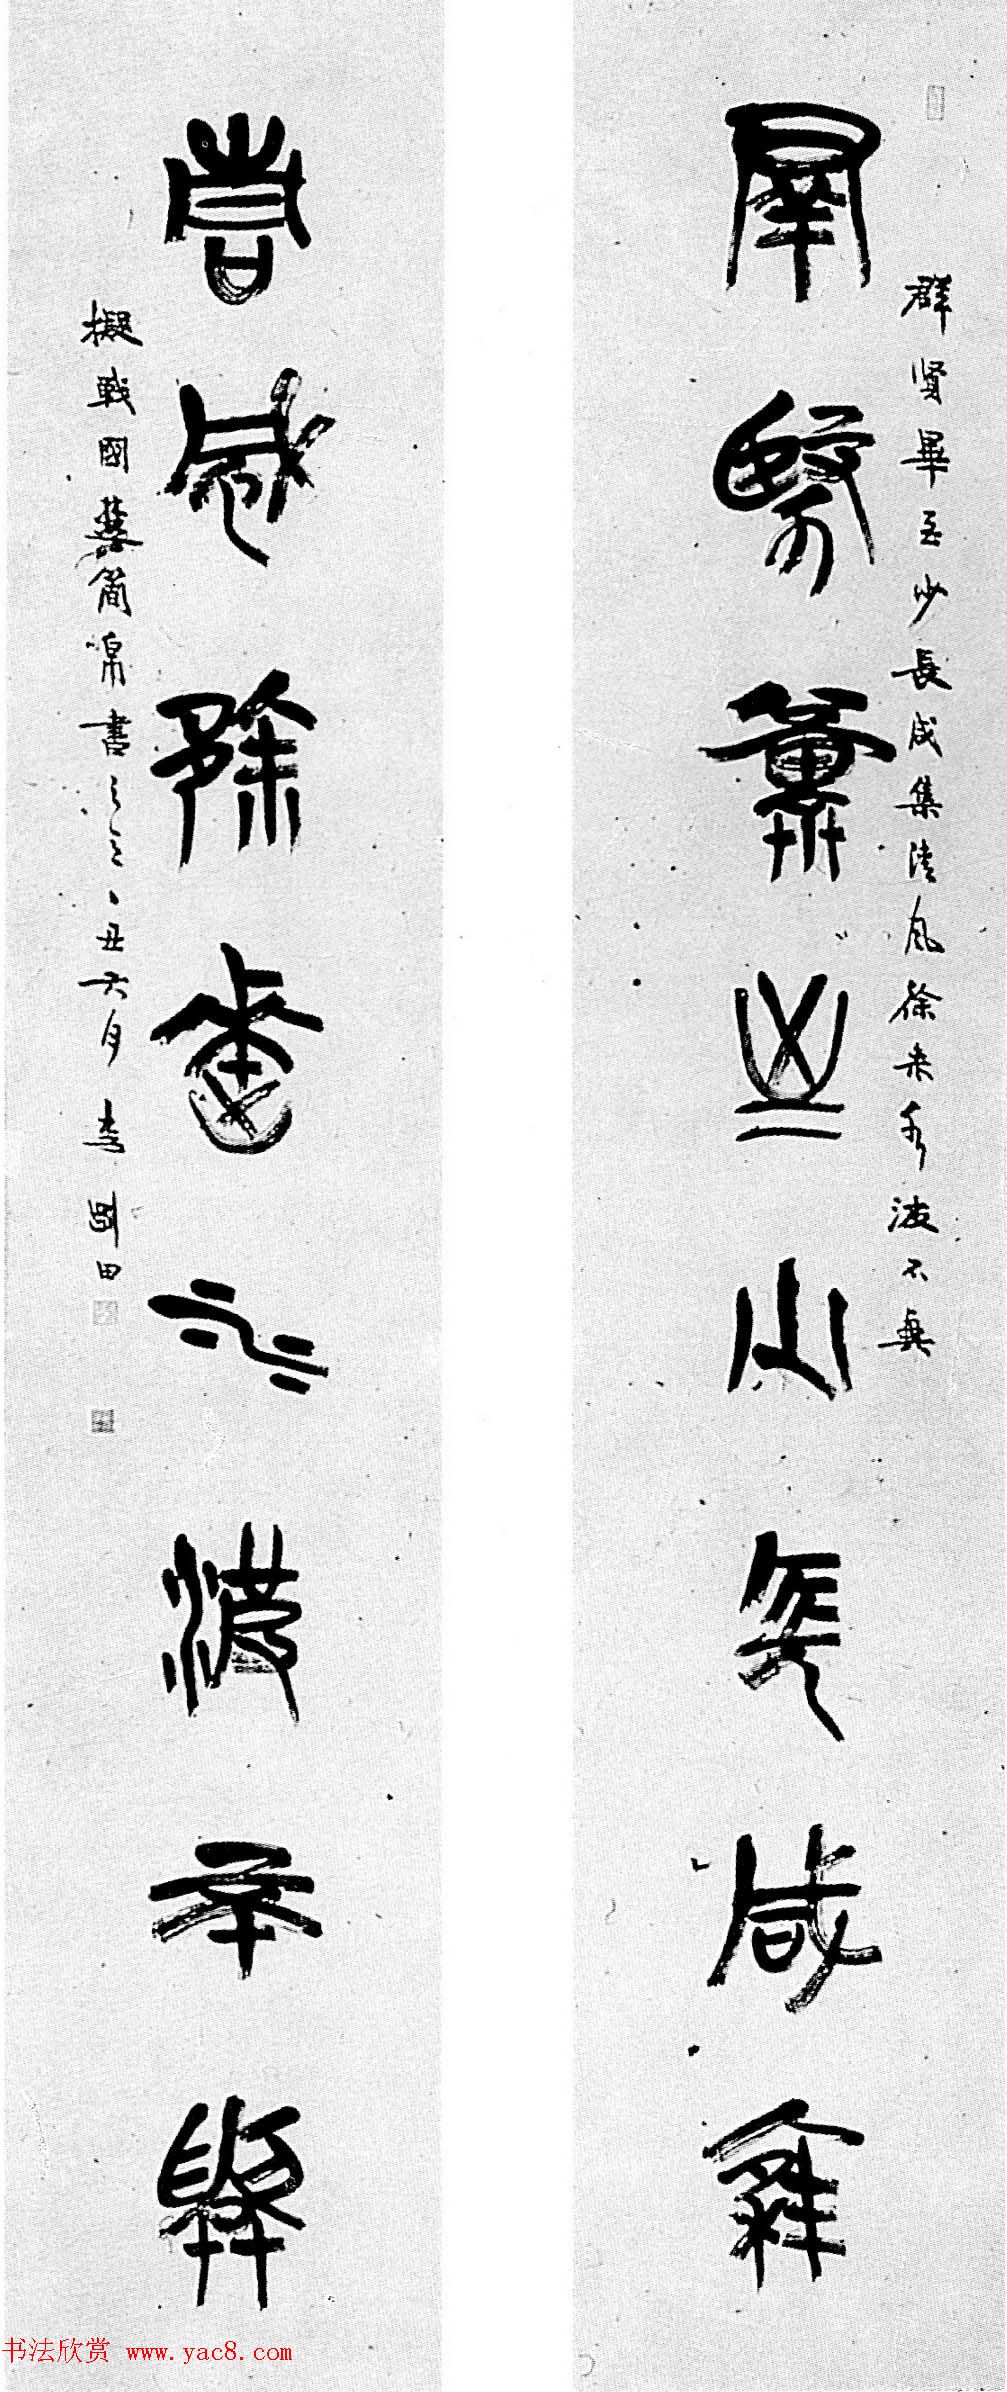 群賢畢至少長咸集清風徐来水波不興
群賢畢至少長咸集
清風徐來水波不興
擬戰國楚簡帛書之乙丑六月李剛田
书法欣赏 www.yac8.com